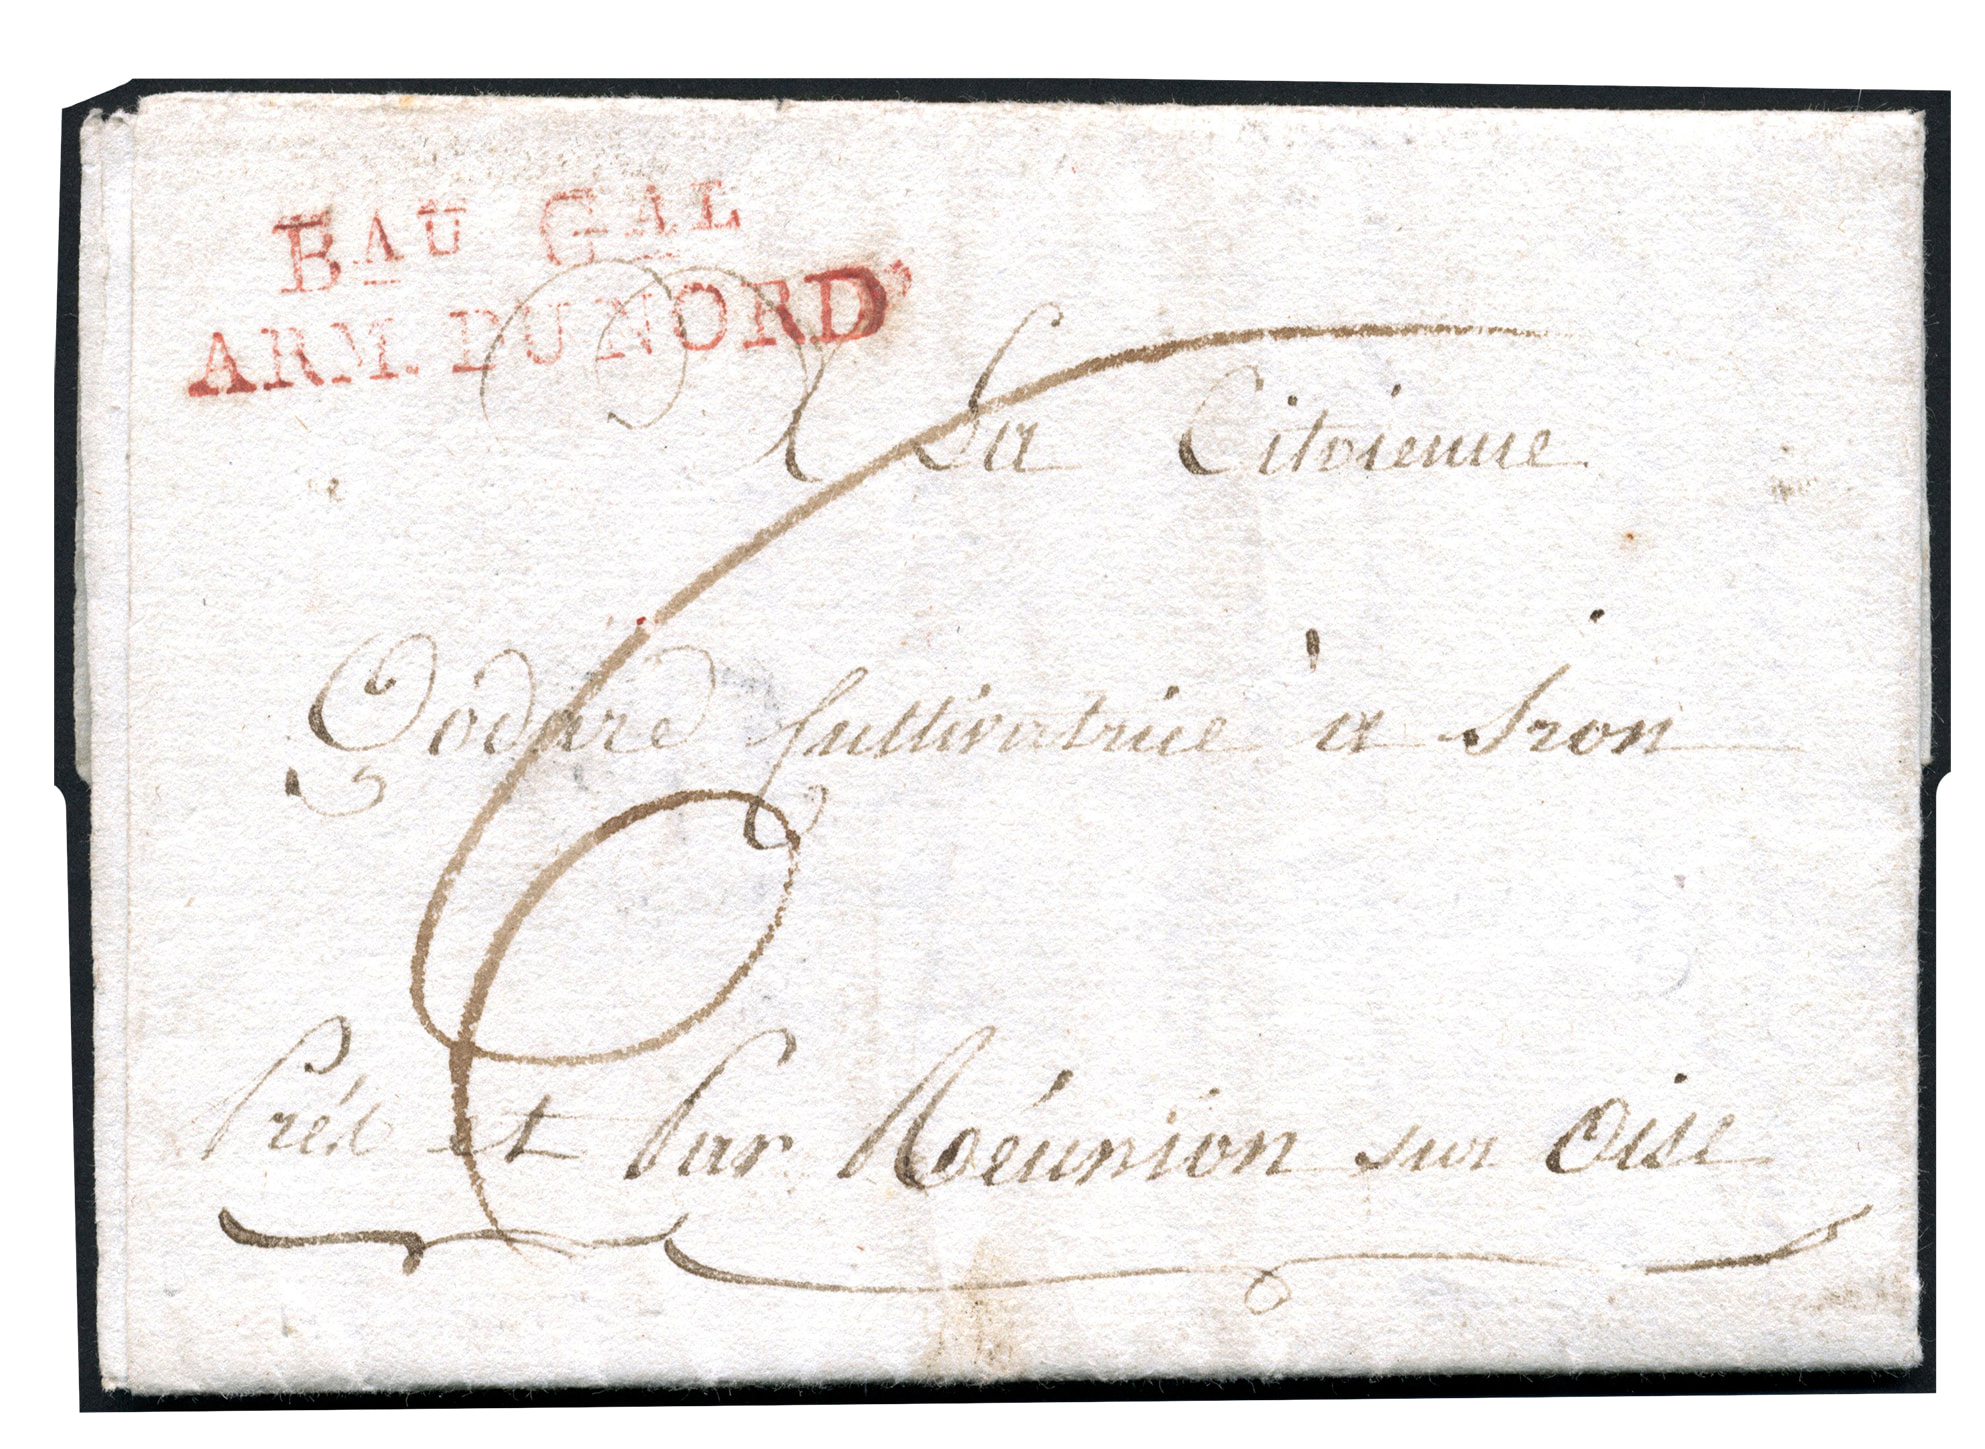 BAU GAL
ARM. DU NORD
A La Citoienne
Godard Cultivatrice à Iron
Prés et Par Réunion sur Oise
6